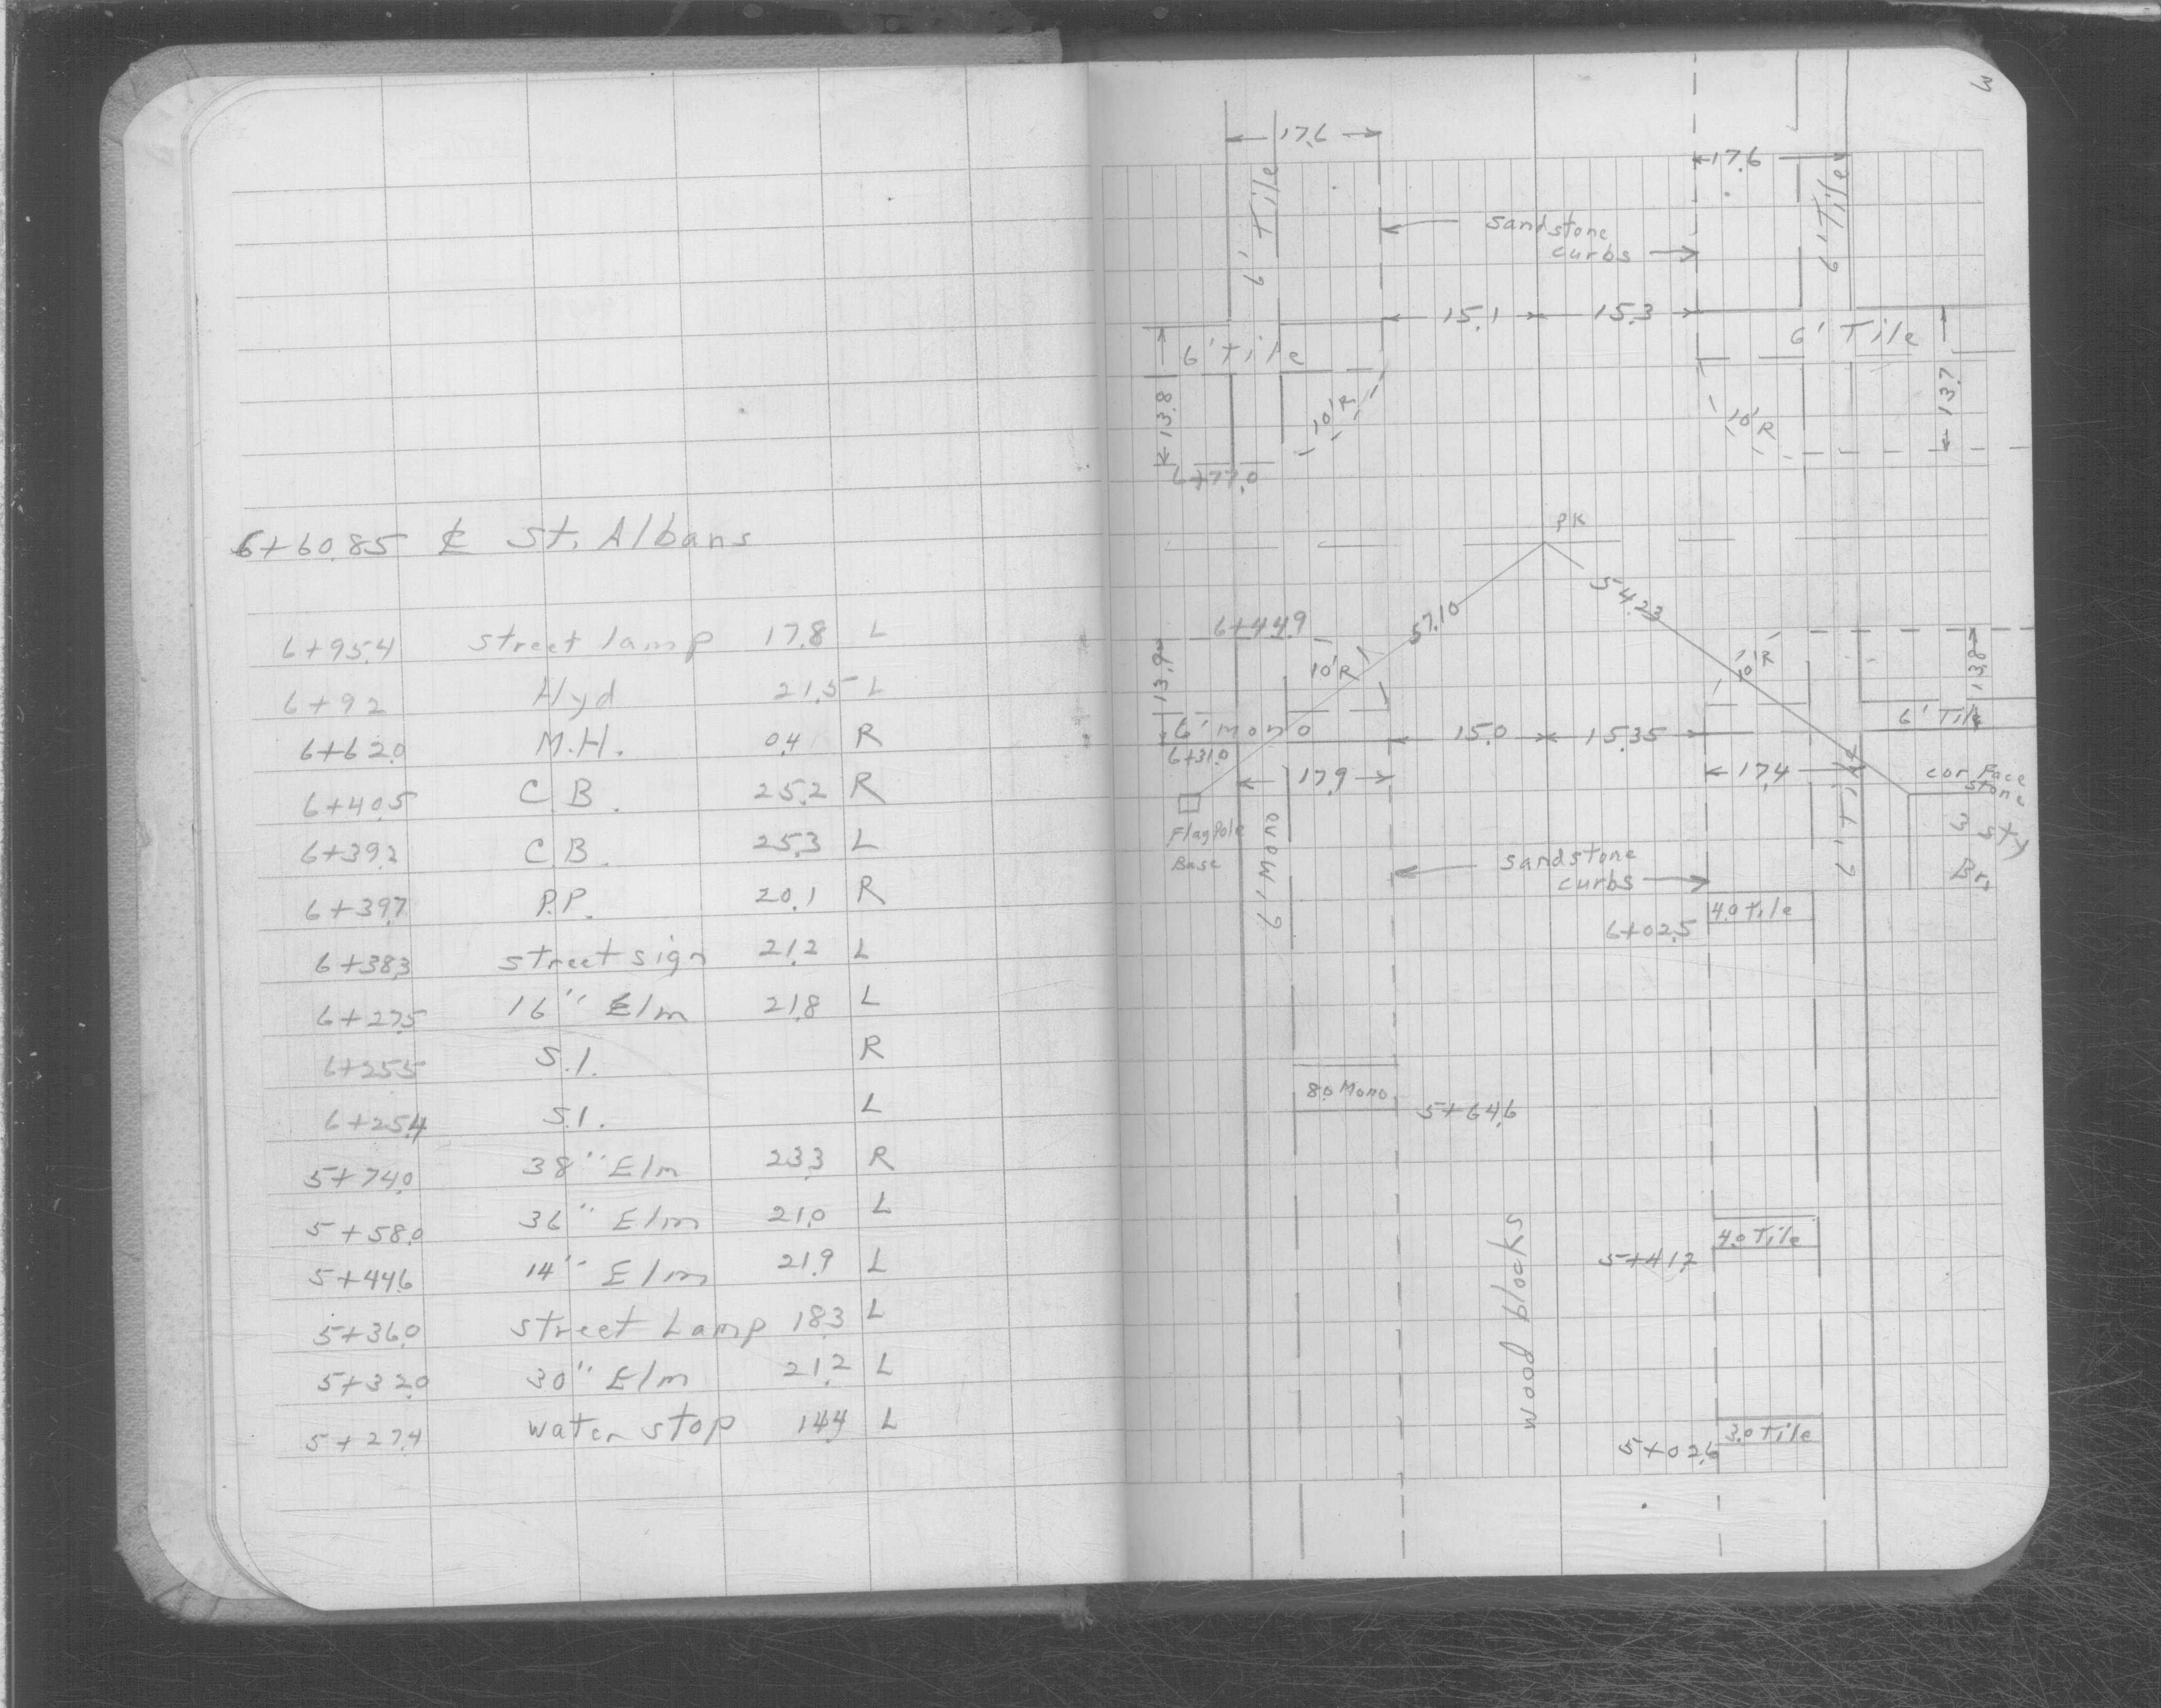 6+60.85 ₵ St. Albans
6+95.4 street lamp 17.8 L
6+92 Hyd 21.5 L
6+62.0 M.H. 0.4 R
6+40.5 C.B. 25.2 R
6+39.2 C.B. 25.3 L
6+39.7 P.P. 20.1 R
6+38.3 street sign 21.2 L
6+27.5 16" Elm 21.8 L
6+25.5 S.I. R
6+25.4 S.I. L
5+74.0 38" Elm 23.3 R
5+58.0 36" Elm 21.0 L
5+44.6 14" Elm 21.9 L
5+36.0 street Lamp 18.3 L
5+32.0 30" Elm 21.2 L
5+27.4 water stop 14.4 L
3
17.6
17.6
6' Tile
6' Tile
sandstone
curbs
15.1 15.3
6' Tile
6' Tile
13.8
10'R
10'R
13.7
6+77.0
PK
57.10
54.23
6+44.9
13.9
10'R
10'R
13.8
6' mono
15.0 15.35
6' Tile
6+31.0
17.9
17.4
cor Face
stone
3 sty
Br.
FlagPole
Base
6' Mono
6' Tile
sandstone
curbs
4.0 Tile
6+02.5
8.0 Mono
5+64.6
wood blocks
4.0 Tile
5+41.2
3.0 Tile
5+02.6